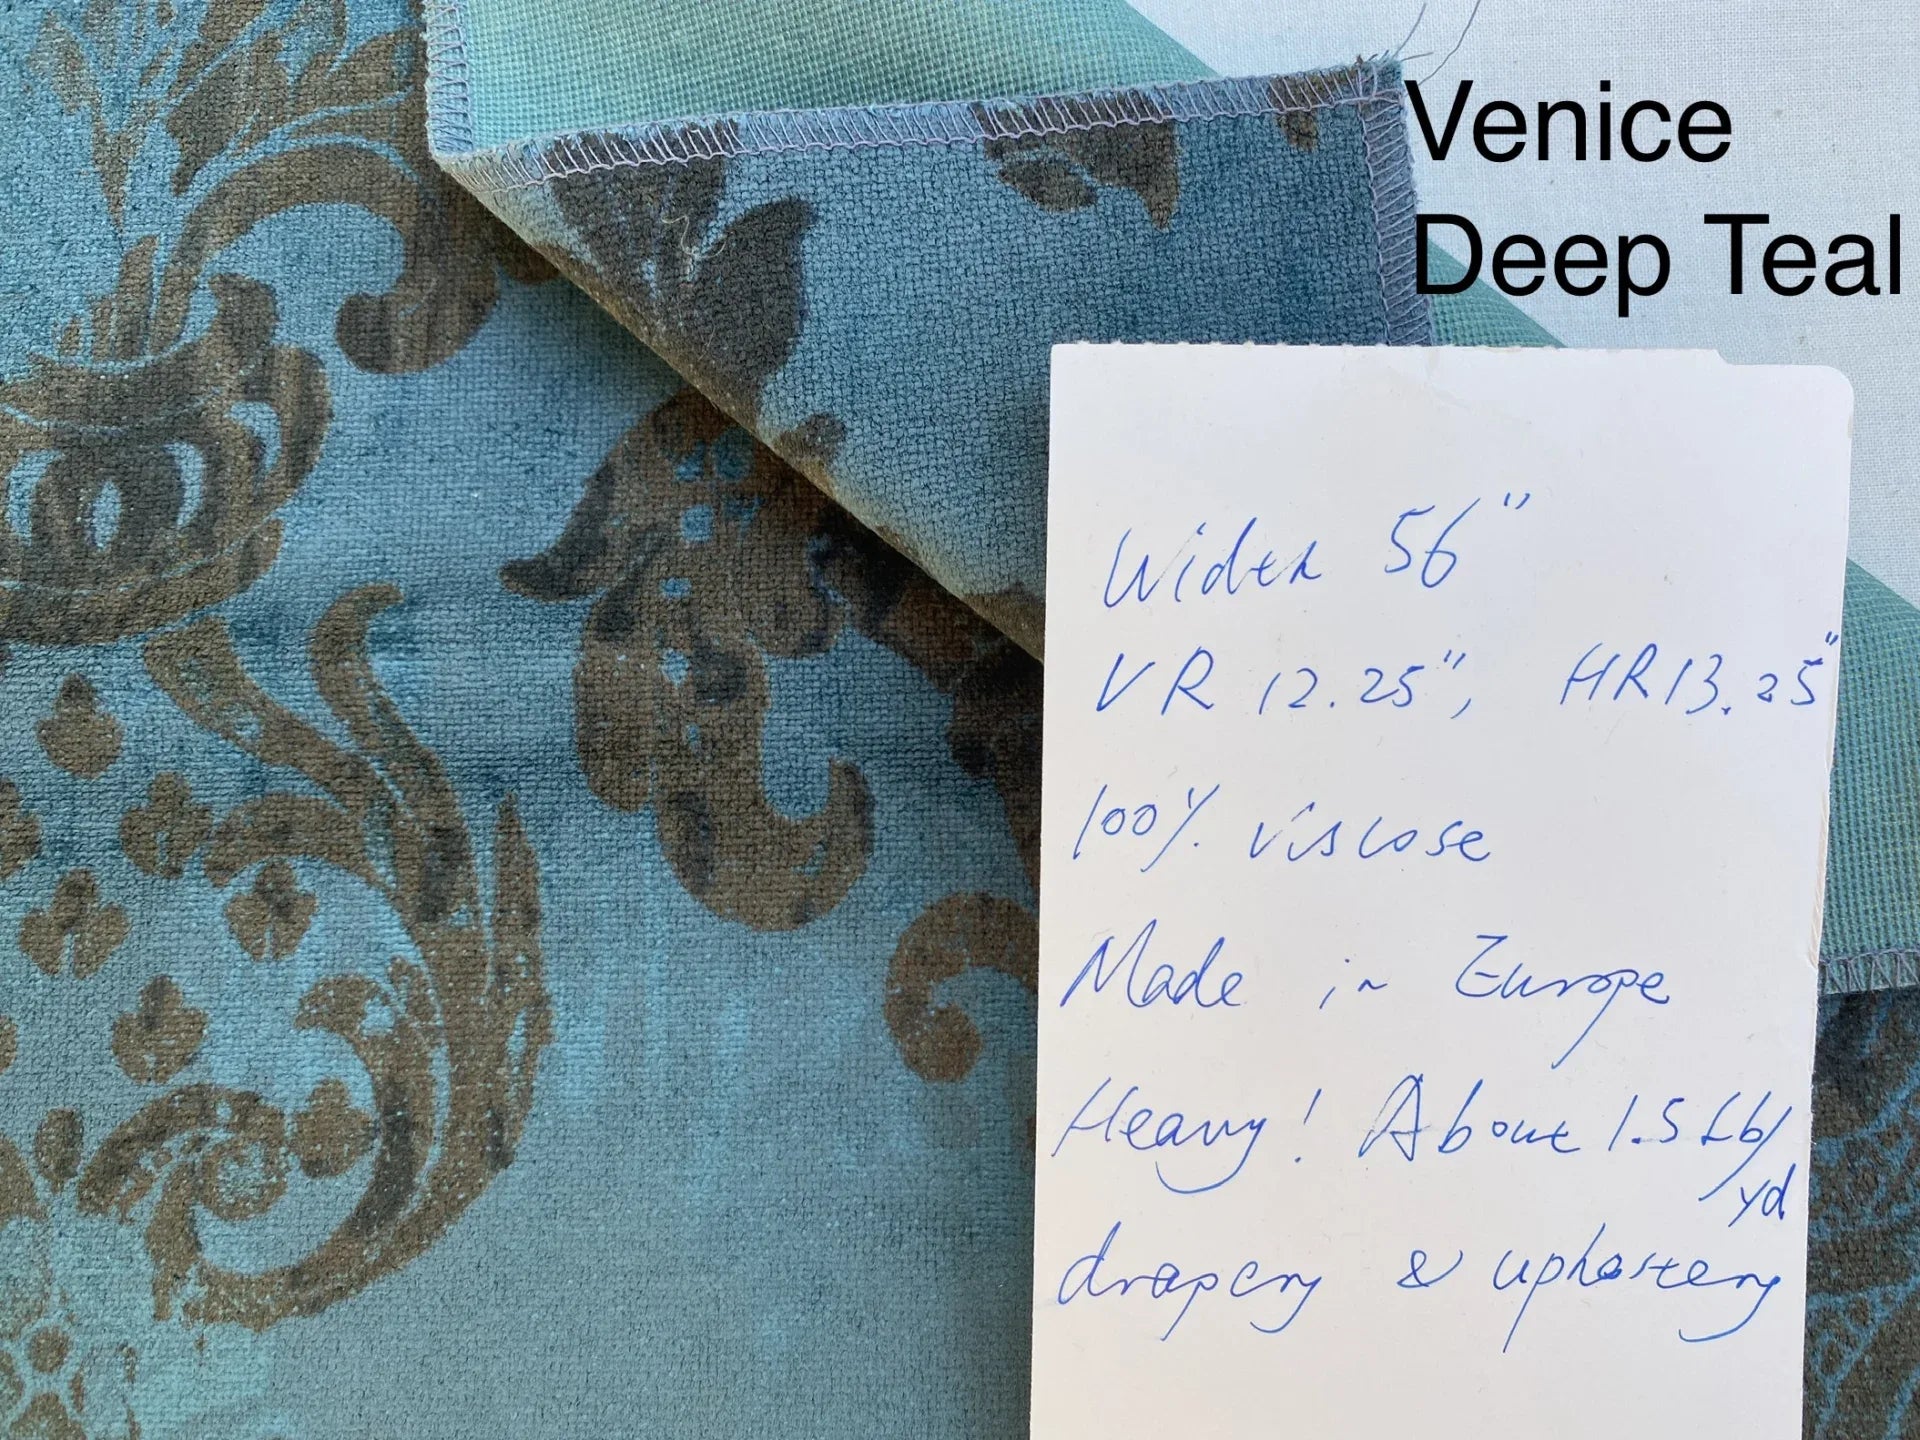 Venice
Deep Teal
Width 56"
VR 12.25", HR 13.25"
100% viscose
Made in Europe
Heavy! About 1.5 Lb/
yd
drapery & upholstery